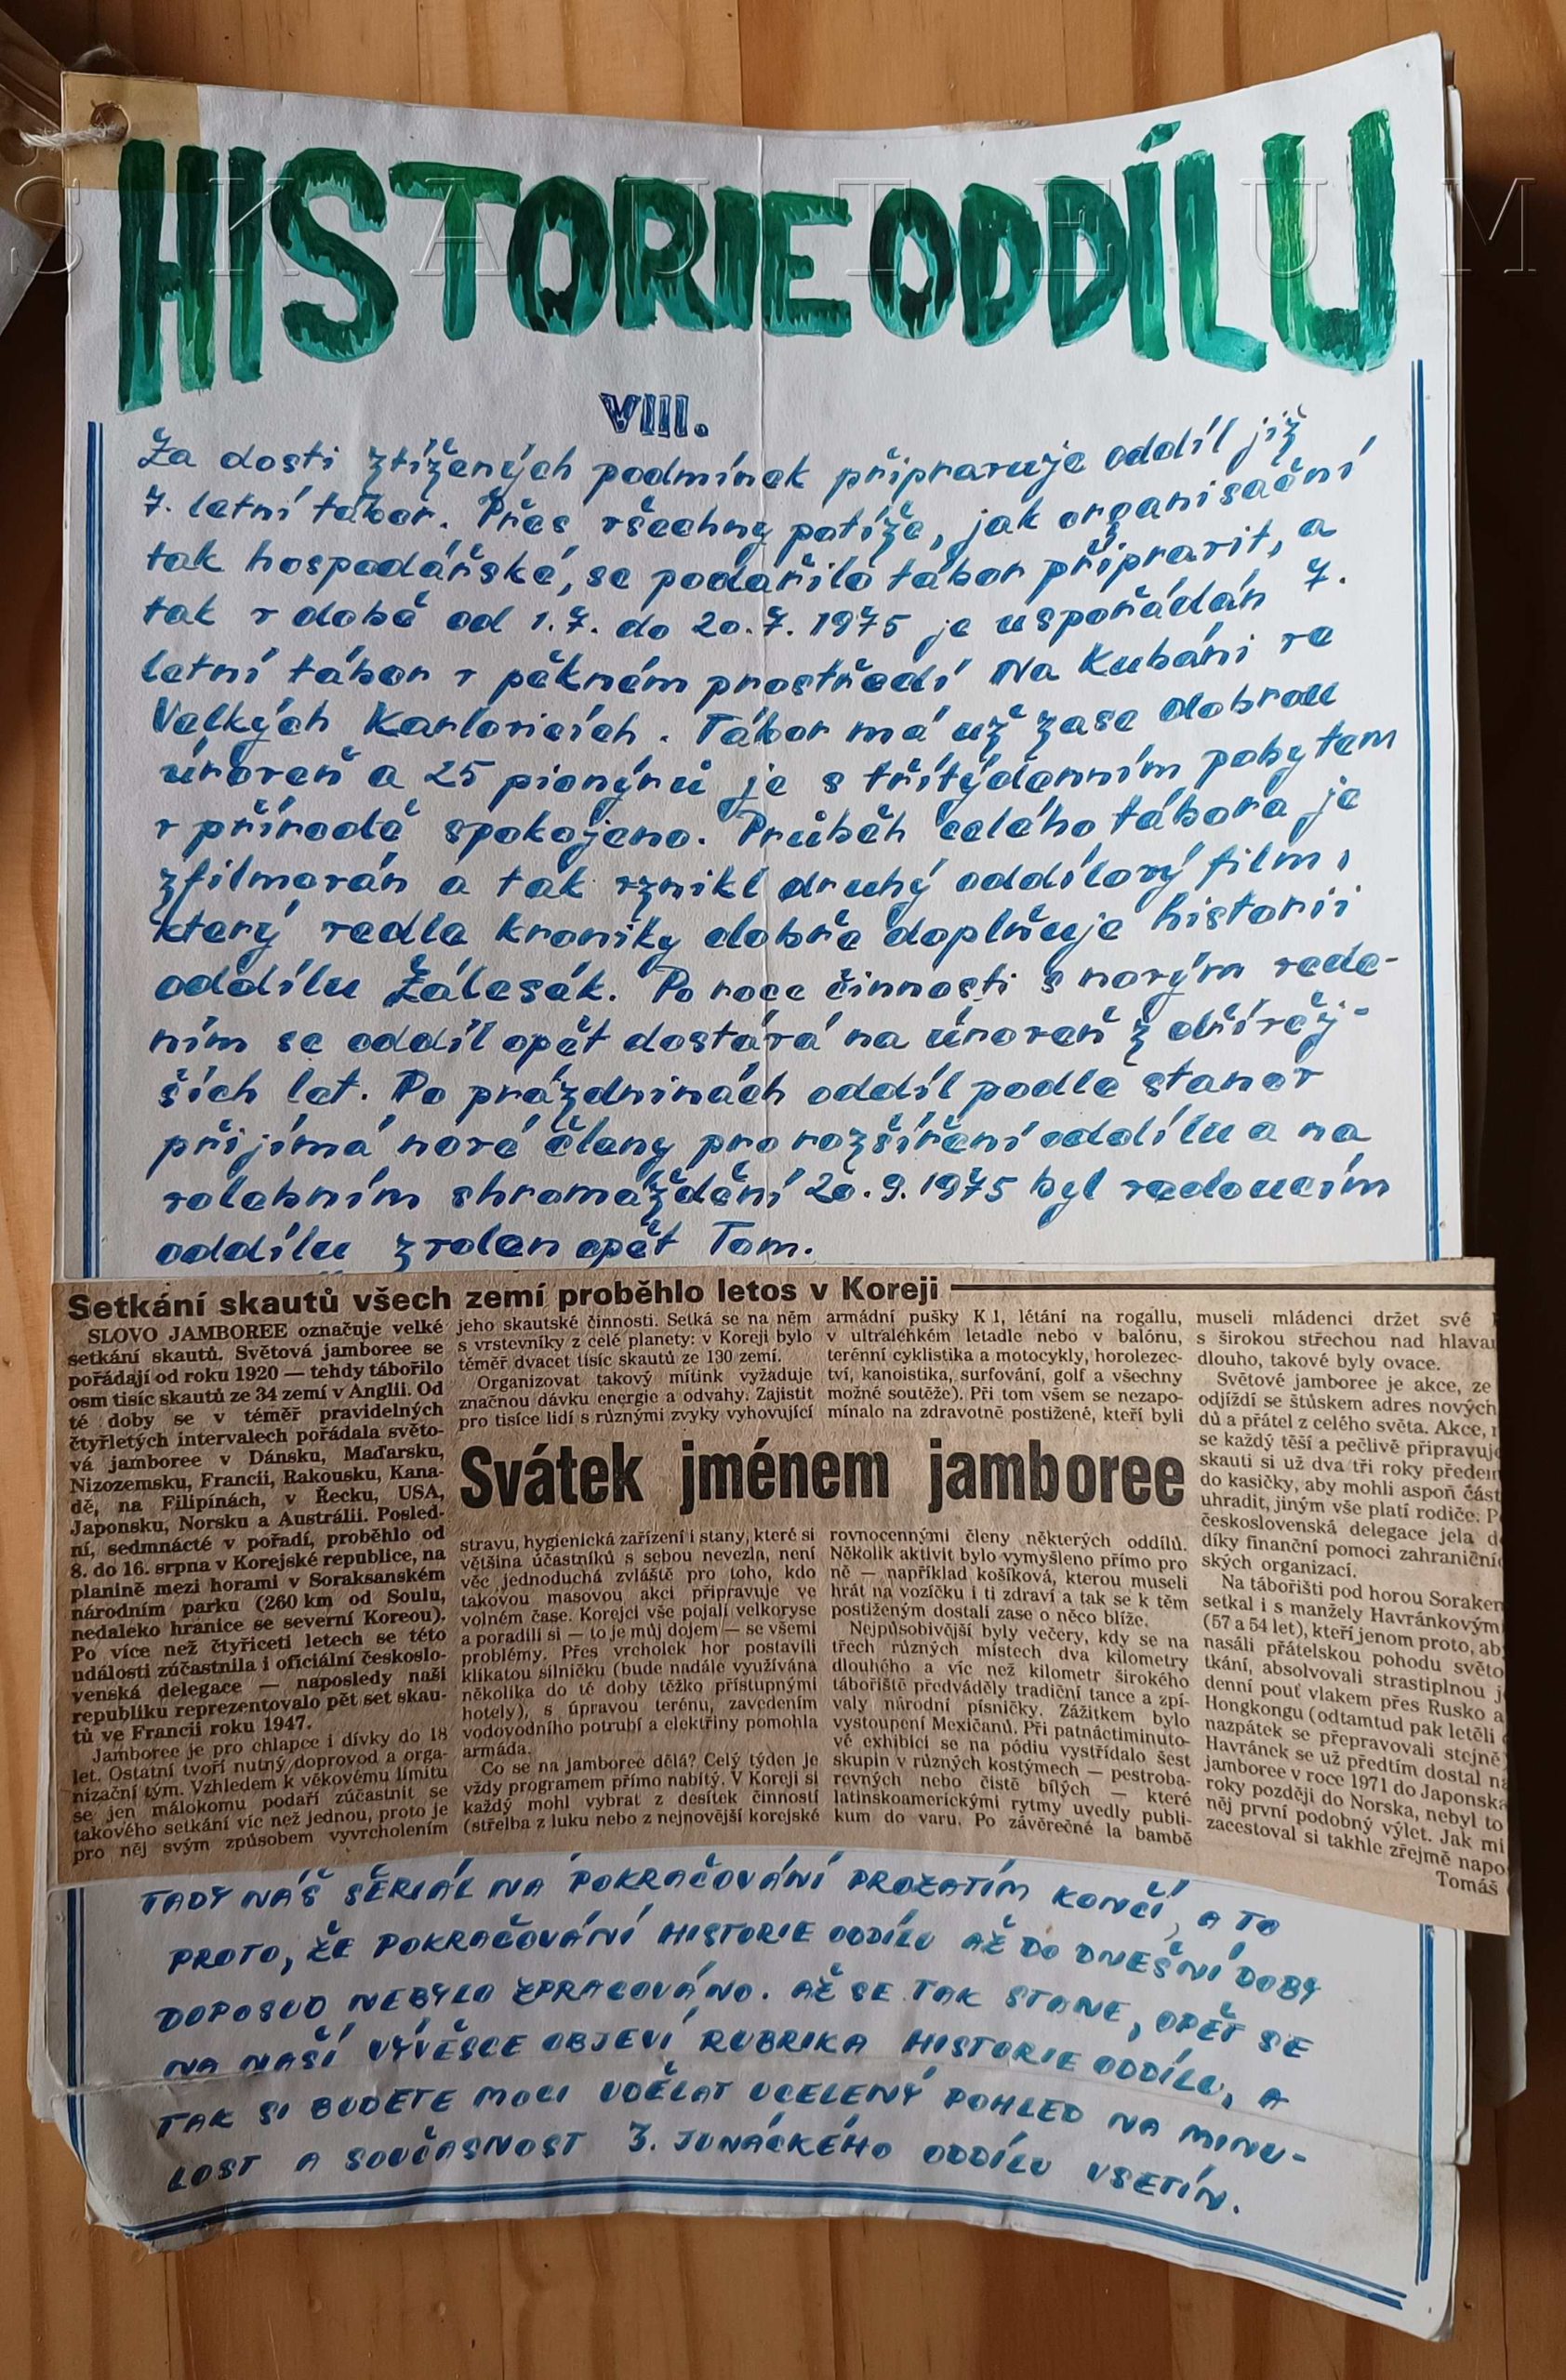 HISTORIE ODDÍLU
SKAUTEUM
VIII.
Za dosti ztížených podmínek připravuje oddíl již
7. letní tábor. Přes všechny potíže, jak organisační
tak hospodářské, se podařilo tábor připravit, a
tak v době od 1.7. do 20.7.1975 je uspořádán 7.
letní tábor v pěkném prostředí Na Kubáni ve
Velkých Karlovicích. Tábor má už zase dobrou
úroveň a 25 pionýrů je s třítýdenním pobytem
v přírodě spokojeno. Průběh celého tábora je
zfilmován a tak vznikl druhý oddílový film,
který vedle kroniky dobře doplňuje historii
oddílu Zálesák. Po roce činnosti s novým vede-
ním se oddíl opět dostává na úroveň z dřívěj-
ších let. Po prázdninách oddíl podle stanov
přijímá nové členy pro rozšíření oddílu a na
volebním shromáždění 20.9.1975 byl vedoucím
oddílu zvolen opět Tom.
Setkání skautů všech zemí proběhlo letos v Koreji
SLOVO JAMBOREE označuje velké
setkání skautů. Světová jamboree se
pořádají od roku 1920 — tehdy tábořilo
osm tisíc skautů ze 34 zemí v Anglii. Od
té doby se v téměř pravidelných
čtyřletých intervalech pořádala světo-
vá jamboree v Dánsku, Maďarsku,
Nizozemsku, Francii, Rakousku, Kana-
dě, na Filipínách, v Řecku, USA,
Japonsku, Norsku a Austrálii. Posled-
ní, sedmnácté v pořadí, proběhlo od
8. do 16. srpna v Korejské republice, na
planině mezi horami v Soraksanském
národním parku (260 km od Soulu,
nedaleko hranice se severní Koreou).
Po více než čtyřiceti letech se této
události zúčastnila i oficiální českoslo-
venská delegace — naposledy naši
republiku reprezentovalo pět set skau-
tů ve Francii roku 1947.
Jamboree je pro chlapce i dívky do 18
let. Ostatní tvoří nutný doprovod a orga-
nizační tým. Vzhledem k věkovému limitu
se jen málokomu podaří zúčastnit se
takového setkání víc než jednou, proto je
pro něj svým způsobem vyvrcholením
jeho skautské činnosti. Setká se na něm
s vrstevníky z celé planety: v Koreji bylo
téměř dvacet tisíc skautů ze 130 zemí.
Organizovat takový mítink vyžaduje
značnou dávku energie a odvahy. Zajistit
pro tisíce lidí s různými zvyky vyhovující
Svátek jménem jamboree
stravu, hygienická zařízení i stany, které si
většina účastníků s sebou nevezla, není
věc jednoduchá zvláště pro toho, kdo
takovou masovou akci připravuje ve
volném čase. Korejci vše pojali velkoryse
a poradili si — to je můj dojem — se všemi
problémy. Přes vrcholek hor postavili
klikatou silničku (bude nadále využívána
několika do té doby těžko přístupnými
hotely), s úpravou terénu, zavedením
vodovodního potrubí a elektřiny pomohla
armáda.
Co se na jamboree dělá? Celý týden je
vždy programem přímo nabitý. V Koreji si
každý mohl vybrat z desítek činností
(střelba z luku nebo z nejnovější korejské
armádní pušky K 1, létání na rogallu,
v ultralehkém letadle nebo v balónu,
terénní cyklistika a motocykly, horolezec-
tví, kanoistika, surfování, golf a všechny
možné soutěže). Při tom všem se nezapo-
mínalo na zdravotně postižené, kteří byli
rovnocennými členy některých oddílů.
Několik aktivit bylo vymyšleno přímo pro
ně — například košíková, kterou museli
hrát na vozíčku i ti zdraví a tak se k těm
postiženým dostali zase o něco blíže.
Nejpůsobivější byly večery, kdy se na
třech různých místech dva kilometry
dlouhého a víc než kilometr širokého
tábořiště předváděly tradiční tance a zpí-
valy národní písničky. Zážitkem bylo
vystoupení Mexičanů. Při patnáctiminuto-
vé exhibici se na pódiu vystřídalo šest
skupin v různých kostýmech — pestroba-
revných nebo čistě bílých — které
latinskoamerickými rytmy uvedly publi-
kum do varu. Po závěrečné la bambě
museli mládenci držet své
s širokou střechou nad hlavau
dlouho, takové byly ovace.
Světové jamboree je akce, ze
odjíždí se štůskem adres nových
dů a přátel z celého světa. Akce,
se každý těší a pečlivě připravuje
skauti si už dva tři roky předem
do kasičky, aby mohli aspoň část
uhradit, jiným vše platí rodiče. P
československá delegace jela d
díky finanční pomoci zahraniční
ských organizací.
Na tábořišti pod horou Soraken
setkal i s manžely Havránkovým
(57 a 54 let), kteří jenom proto, ab
nasáli přátelskou pohodu světo
tkání, absolvovali strastiplnou j
denní pouť vlakem přes Rusko a
Hongkongu (odtamtud pak letěli
nazpátek se přepravovali stejně
Havránek se už předtím dostal na
jamboree v roce 1971 do Japonska
roky později do Norska, nebyl to
něj první podobný výlet. Jak mi
zacestoval si takhle zřejmě napo
Tomáš
TADY NÁŠ SERIÁL NA POKRAČOVÁNÍ PROZATÍM KONČÍ, A TO
PROTO, ŽE POKRAČOVÁNÍ HISTORIE ODDÍLU AŽ DO DNEŠNÍ DOBY
DOPOSUD NEBYLO ZPRACOVÁNO. AŽ SE TAK STANE, OPĚT SE
NA NAŠÍ VÝVĚSCE OBJEVÍ RUBRIKA HISTORIE ODDÍLU, A
TAK SI BUDETE MOCI UDĚLAT UCELENÝ POHLED NA MINU-
LOST A SOUČASNOST 3. JUNÁCKÉHO ODDÍLU VSETÍN.